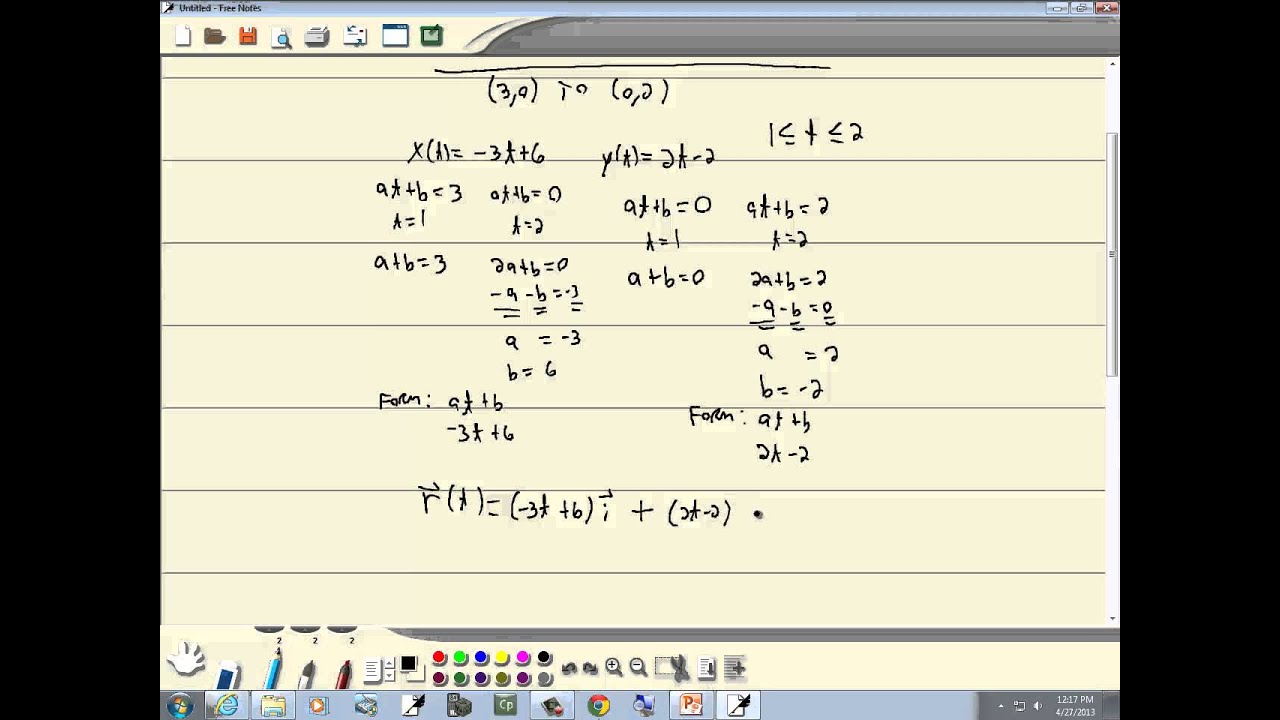 Untitled - Free Notes
(3,0) to (0,2)
1 ≤ t ≤ 2
x(t) = -3t+6 y(t) = 2t-2
at+b = 3 at+b = 0 at+b = 0 at+b = 2
t=1 t=2 t=1 t=2
a+b=3 2a+b=0 a+b=0 2a+b=2
-a -b = -3 -a -b = 0
a = -3 a = 2
b = 6 b = -2
Form: at+b Form: at+b
-3t+6 2t-2
r⃗(t) = (-3t+6) i⃗ + (2t-2)
2 2 2
Cp
12:17 PM
4/27/2013